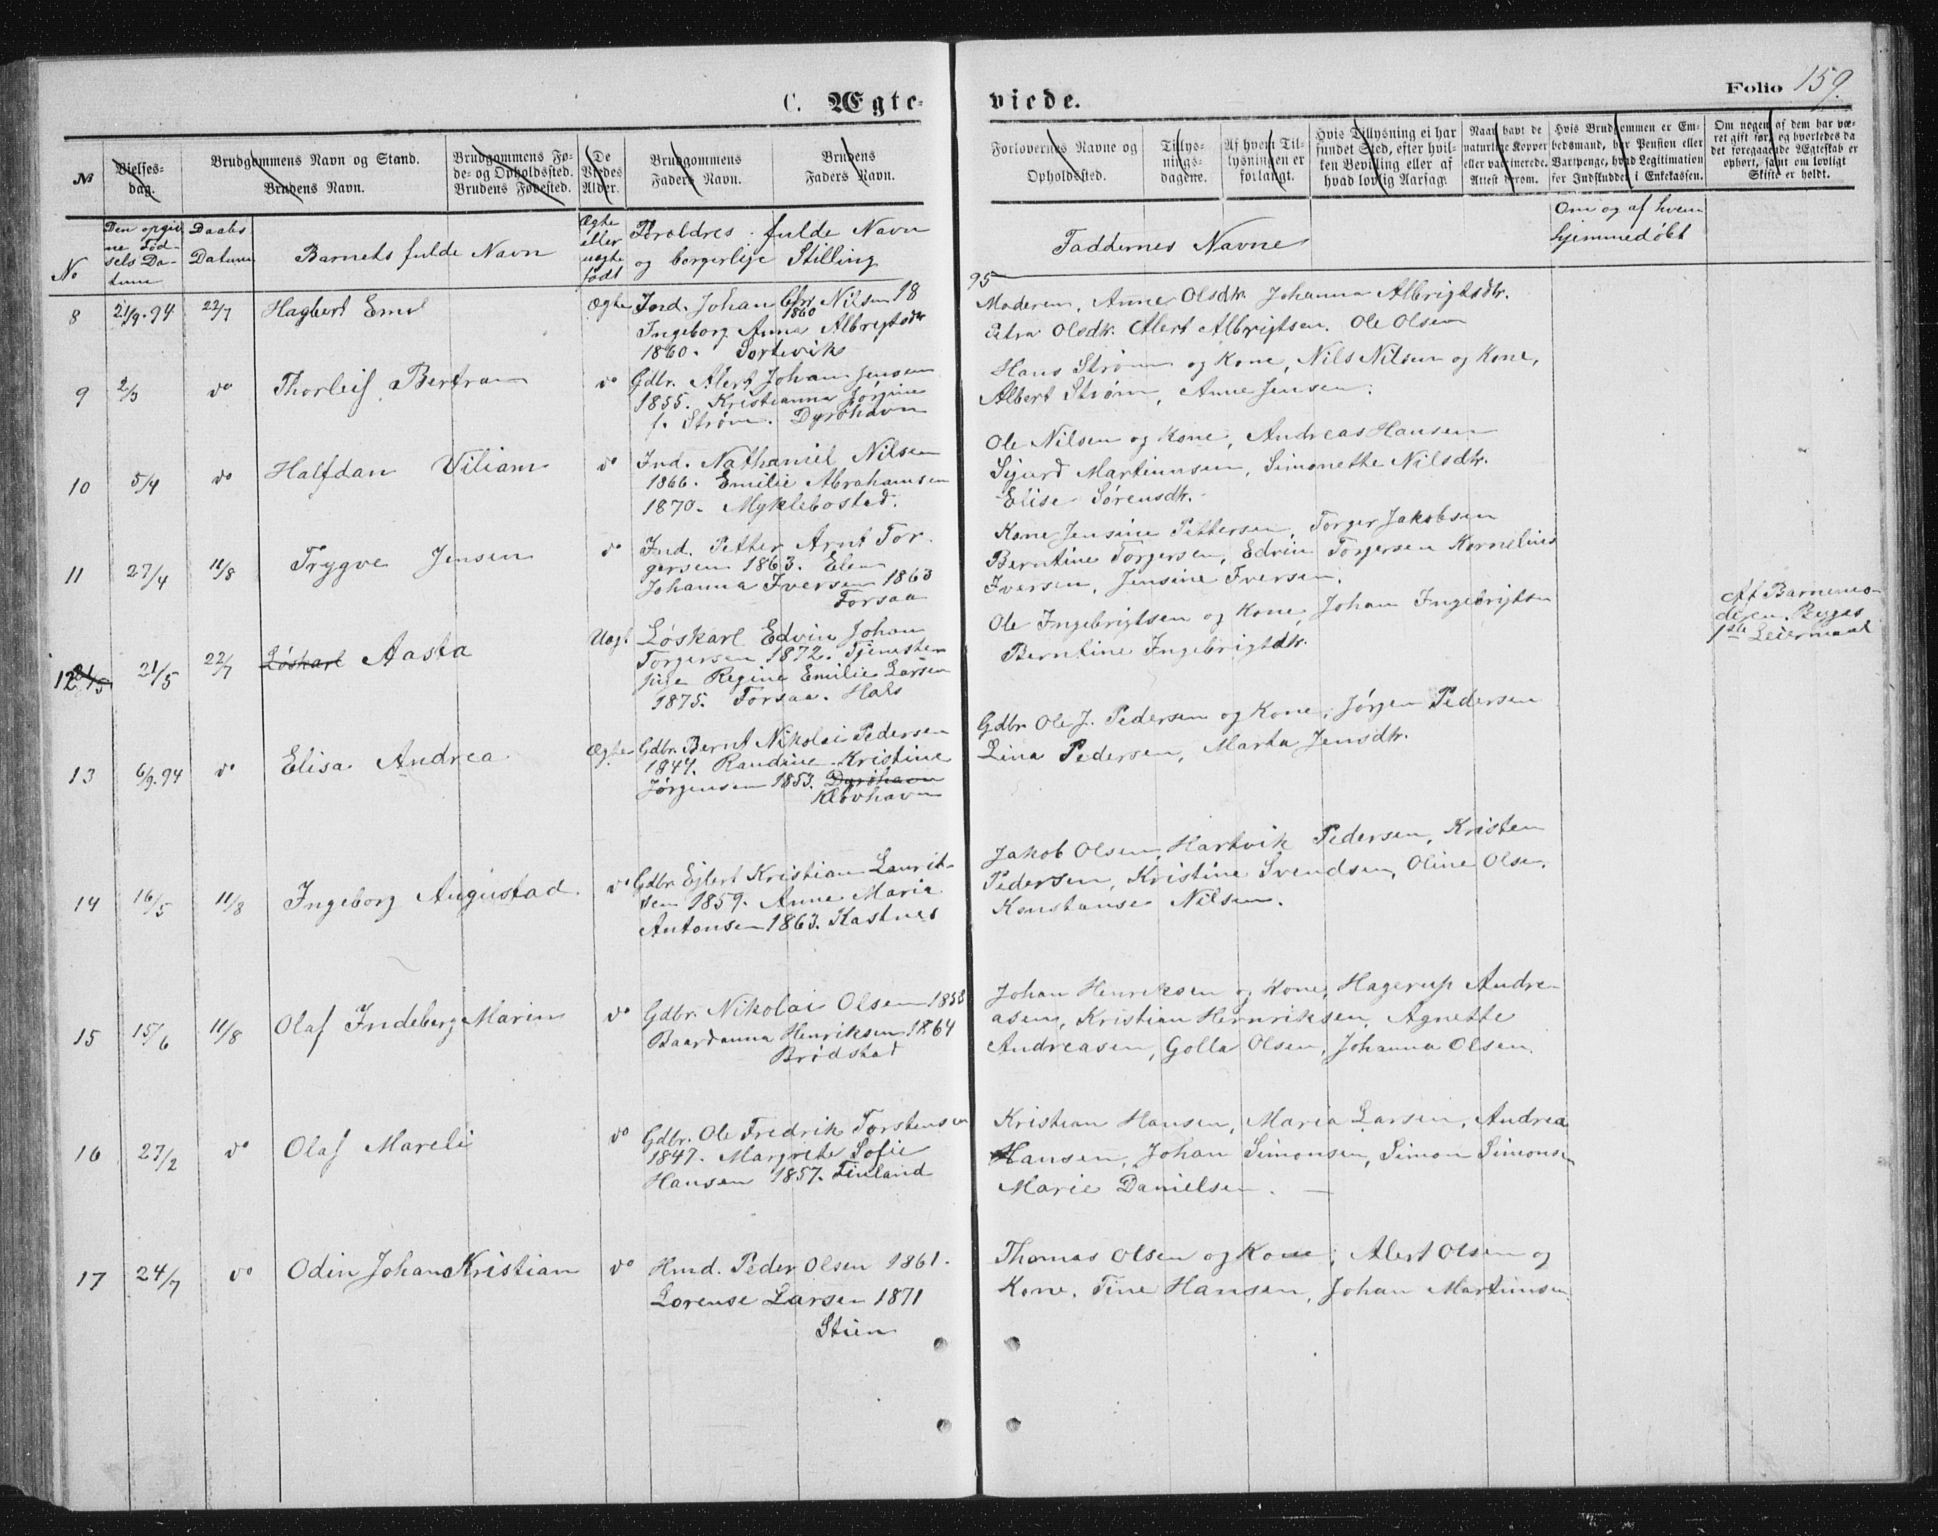 C. Ægte-
viede.
Folio 159
№
Vielses-
dag.
Brudgommens Navn og Stand.
Brudens Navn.
Brudgommens Fø-
de- og Opholdssted.
Brudens Fødested.
De
Viedes
Alder.
Brudgommens
Faders Navn.
Brudens
Faders Navn.
Forlovernes Navne og
Opholdssted.
Tillys-
nings-
dagene.
Af hvem Til-
lysningen er
forlangt.
Hvis Tillysning ei har
fundet Sted, efter hvil-
ken Bevilling eller af
hvad lovlig Aarsag.
Naar havt de
naturlige Kopper
eller vaccinerede.
Attest derom.
Hvis Brudgommen er Em-
bedsmand, har Pension eller
Vartpenge, hvad Legitimation
for Indskuddet i Enkekassen.
Om nogen af dem har væ-
ret gift før, og hvorledes da
det foregaaende Ægteskab er
ophørt, samt om lovligt
Skifte er holdt.
No
Den opgiv
ne Fød-
sels Da-
tum
Daabs
Datum
Barnets fulde Navn
Ægte
eller
uægte
født
Forældres fulde Navn
og borgerlige Stilling
Faddernes Navne
Om og af hvem
hjemmedøbt
95
8 21/9.94 22/7 Hagbert Emil Ægte Ind. Johan Chr Nilsen 18
1860
Ingeborg Anna Albregtsdtr
1860. Sortevik
Moderen, Anne Olsdtr. Johanna Albrigtsdtr.
Petra Olsdtr. Alert Albrigtsen. Ole Olsen
9 2/3 do Thorleif Bertram do Gdbr. Alert Johan Jensen
1855. Kristianna Jørgine
f. Strøm. Dyrøhavn
Hans Strøm og Kone, Nils Nilsen og Kone,
Albert Strøm, Anne Jensen.
10 5/4 do Halfdan Viliam do Ind. Nathaniel Nilsen
1866. Emilie Abrahamsen
1870. Myklebostad.
Ole Nilsen og Kone, Andreas Hansen
Sigurd Martinusen, Simonette Nilsdtr.
Elise Sørensdtr.
11 27/4 11/8 Trygve Jensen do Ind. Petter Arnt Tor
gersen 1863. Elen
Johanna Iversen 1863
Forsaa
Kone Jensine Pettersen, Torger Jakobsen
Berntine Torgersen, Edvin Torgersen Kornelius
Iversen, Jensine Iversen.
12 21/5 21/5 22/7 Løskarl Aasta Uægt Løskarl Edvin Johan
Torgersen 1872. Tjeneste
pige Regine Emilie Larsen
1875. Forsaa. Hals
Ole Ingebrigtsen og Kone, Johan Ingebrigtsen
Berntine Ingebrigtdtr.
Af Barnemo-
deren. Begges
1ste Leiermaal
13 6/9.94 do Elisa Andrea Ægte Gdbr. Bernt Nikolai Pedersen
1847. Randine Kristine
Jørgensen 1853. Dyrøhavn
Kløvhavn
Gdbr. Ole J. Pedersen og Kone, Jørgen Pedersen
Lina Pedersen, Marta Jensdtr.
14 16/5 11/8 Ingeborg Augustad do Gdbr. Ejlert Kristian Laurit-
sen 1859. Anne Marie
Antonsen 1863. Kastnes
Jakob Olsen, Hartvik Pedersen, Kristen
Pedersen, Kristine Svendsen, Oline Olsen
Konstanse Nilsen.
15 15/6 11/8 Olaf Indeberg Marin do Gdbr. Nikolai Olsen 1858
Baardanna Henriksen 1864
Brødstad
Johan Henriksen og Kone, Hagerup Andre-
asen, Kristian Hernriksen, Agnette
Andreasen, Golla Olsen, Johanna Olsen.
16 27/2 do Olaf Mareli do Gdbr. Ole Fredrik Torstensen
1847. Margrete Sofie
Hansen 1857. Finland
Kristian Hansen, Maria Larsen, Andrea
Hansen, Johan Simonsen, Simon Simonsen
Marie Danielsen.
17 24/7 do Odin Johan Kristian do Hmd. Peder Olsen 1861.
Lorense Larsen 1871
Stien
Thomas Olsen og Kone, Alert Olsen og
Kone, Tine Hansen, Johan Martinusen